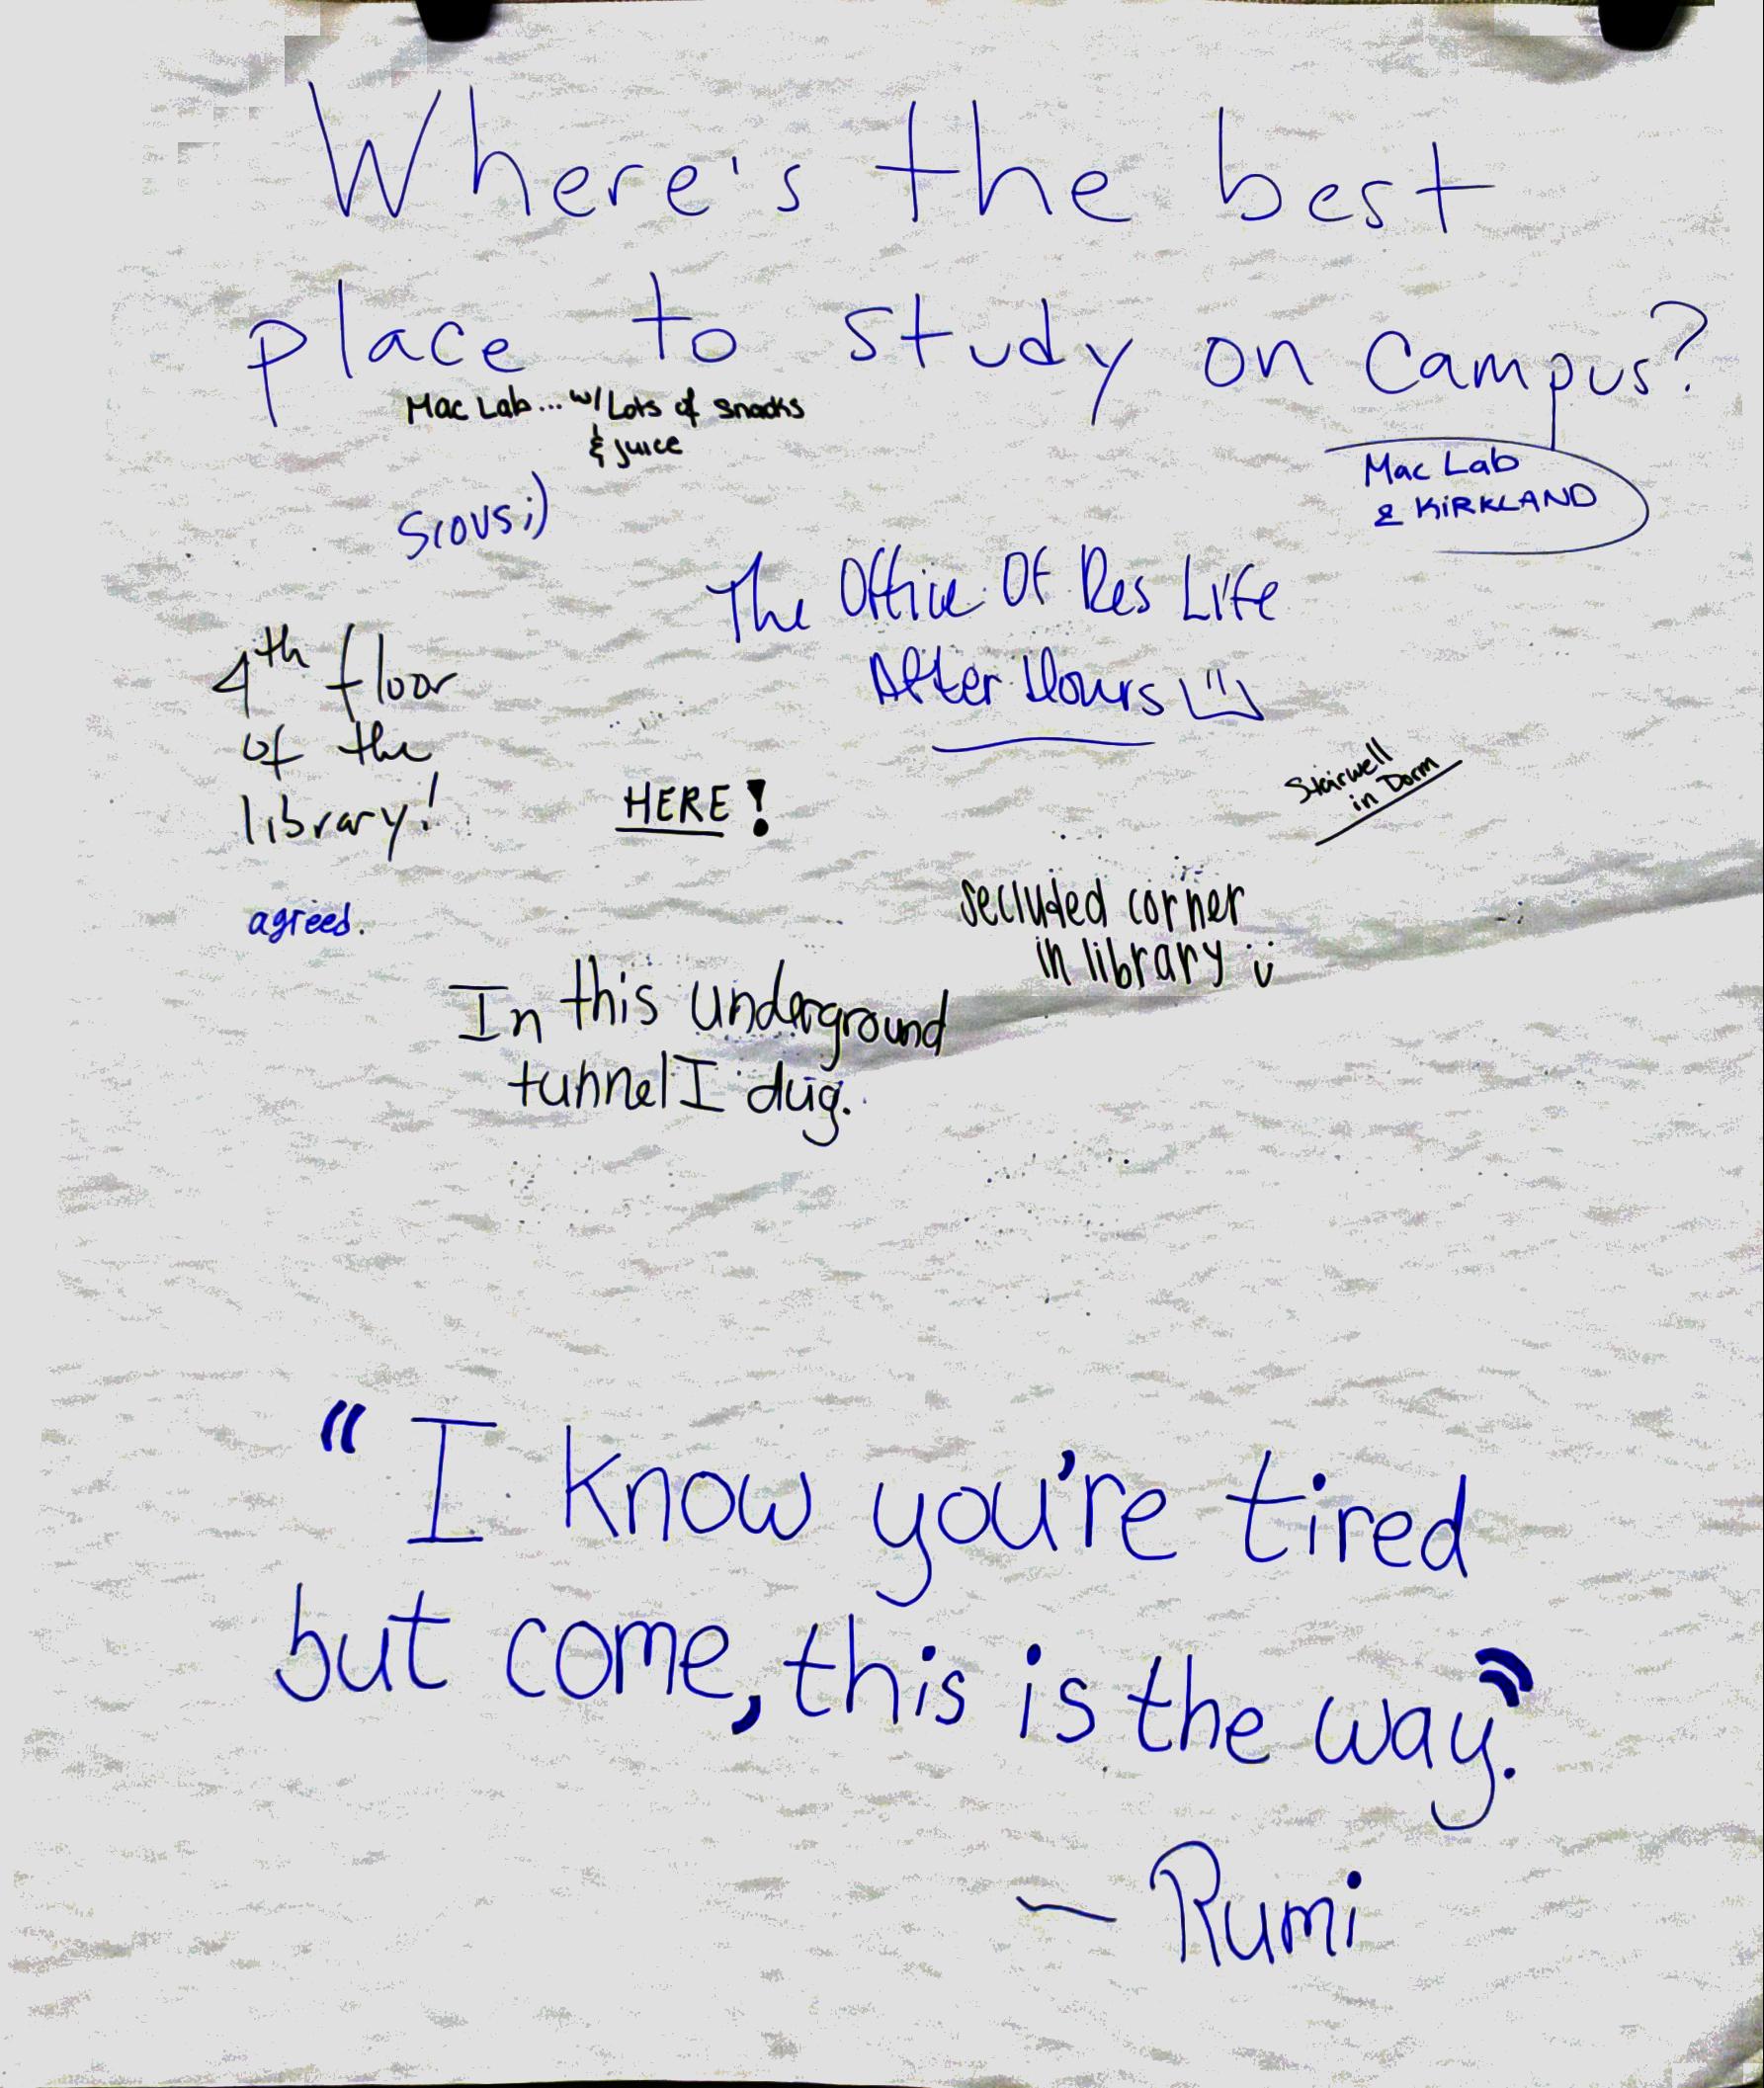 Where's the best
place to study on campus?
Mac Lab... w/ Lots of snacks
& juice
Mac Lab
& KIRKLAND
SLOUS ;)
The Office Of Res Life
After Hours
4th floor
of the
library!
HERE!
Stairwell
in Dorm
agreed.
secluded corner
in library
In this underground
tunnel I dug.
"I know you're tired
but come, this is the way."
— Rumi